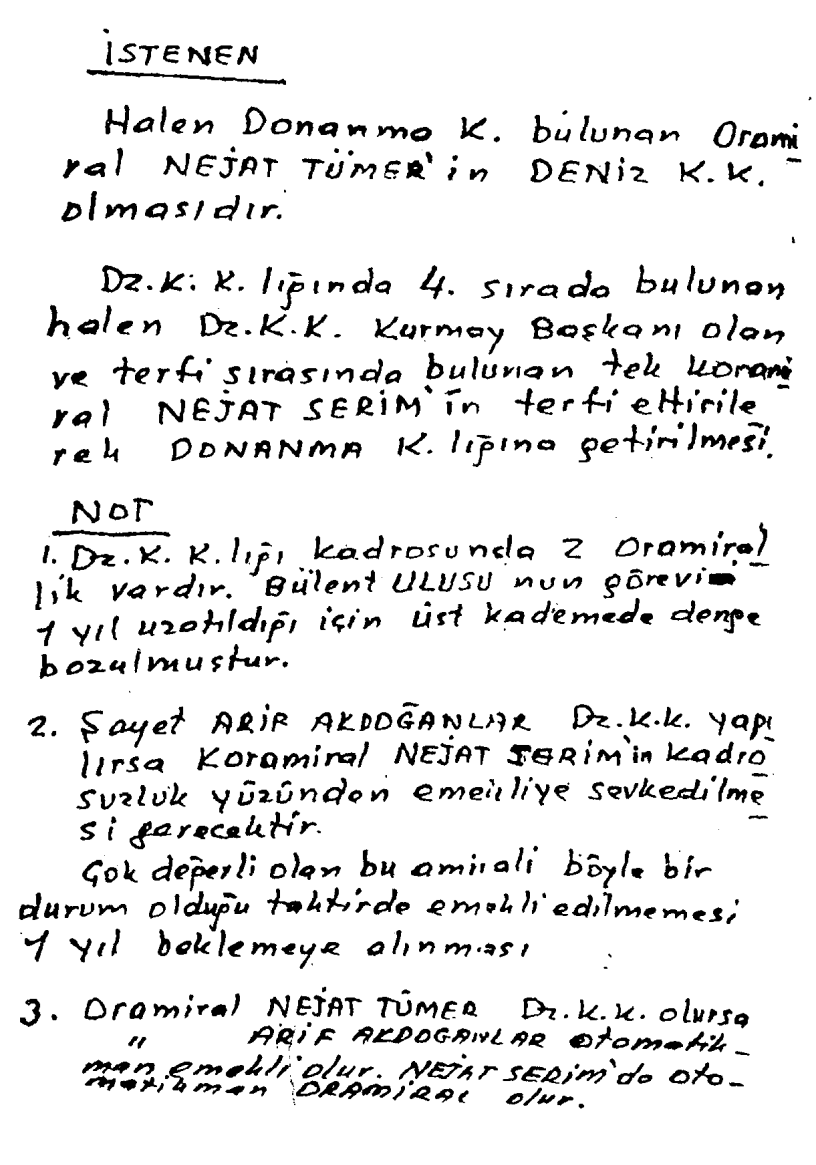 İSTENEN
Halen Donanma K. bulunan Orami
ral NEJAT TÜMER'in DENİZ K.K.
olmasıdır.
Dz.K.K.lığında 4. sırada bulunan
halen Dz.K.K. Kurmay Başkanı olan
ve terfi sırasında bulunan tek korami
ral NEJAT SERİM'in terfi ettirile
rek DONANMA K.lığına getirilmesi.
NOT
1. Dz.K.K.lığı kadrosunda 2 Oramiral
lik vardır. Bülent ULUSU nun görevi
1 yıl uzatıldığı için üst kademede denge
bozulmuştur.
2. Şayet ARİF AKDOĞANLAR Dz.K.K. yapı
lırsa Koramiral NEJAT SERİM'in kadro
suzluk yüzünden emekliye sevkedilme
si gerecektir.
Çok değerli olan bu amirali böyle bir
durum olduğu taktirde emekli edilmemesi
1 yıl beklemeye alınması
3. Oramiral NEJAT TÜMER Dz.K.K. olursa
" ARİF AKDOGANLAR otomatik-
man emekli olur. NEJAT SERİM'de oto-
matikman ORAMİRAL olur.